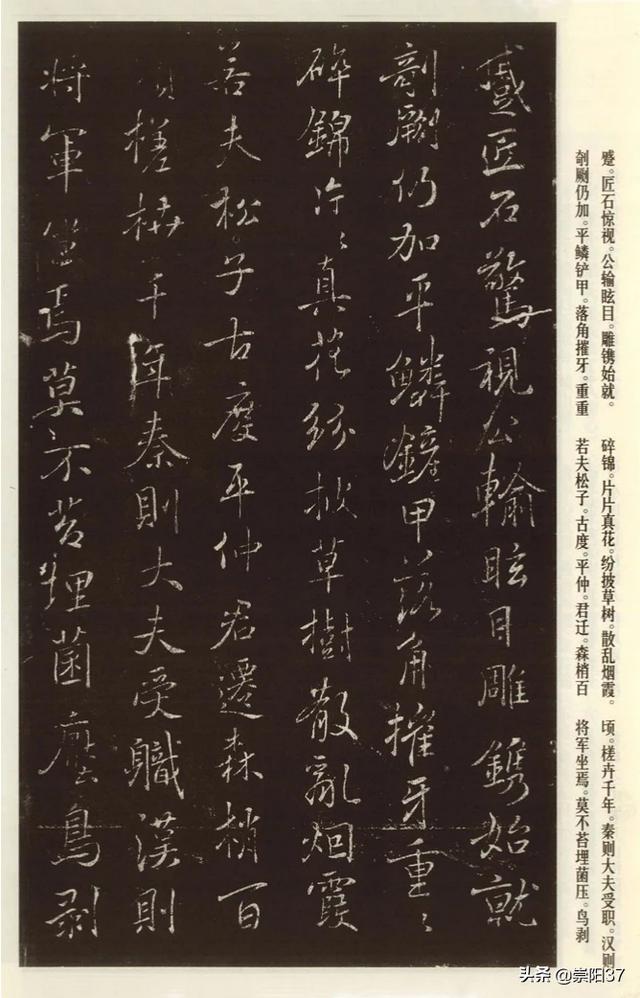 蹙匠石驚視公輸眩目雕鐫始就
剞劂仍加平鱗鏟甲落角摧牙重〻
碎錦片〻真花紛披草樹散亂烟霞
若夫松子古度平仲君遷森梢百
頃槎枿千年秦則大夫受職漢則
將軍坐焉莫不苔埋菌壓鳥剥
蹙。匠石惊视。公输眩目。雕镌始就。
剞劂仍加。平鳞铲甲。落角摧牙。重重
碎锦。片片真花。纷披草树。散乱烟霞。
若夫松子。古度。平仲。君迁。森梢百
顷。槎卉千年。秦则大夫受职。汉则
将军坐焉。莫不苔埋菌压。鸟剥
头条 @崇阳37